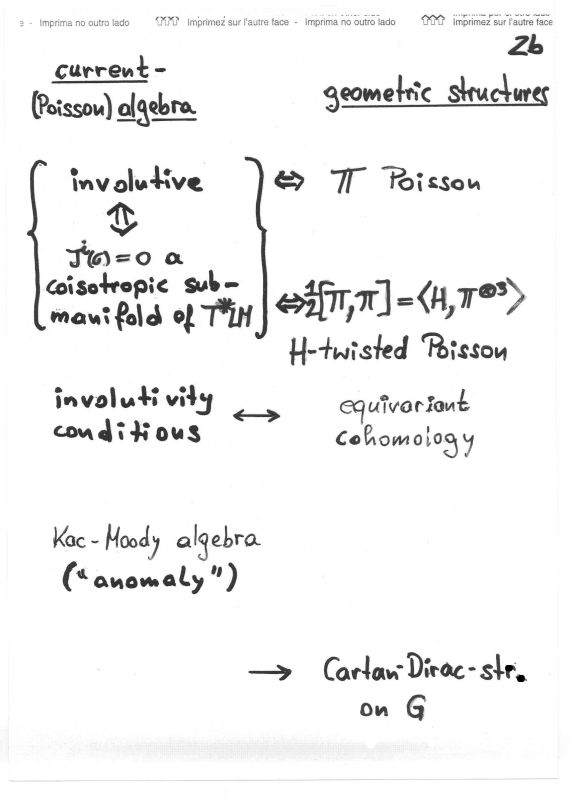 e - Imprima no outro lado Imprimez sur l'autre face - Imprima no outro lado Imprimez sur l'autre face
2b
current-
(Poisson) algebra
geometric structures
involutive ⇔ π Poisson
⇕
J^i(σ)=0 a
coisotropic sub-
manifold of T*LM
⇔ ½[π,π] = ⟨H, π^⊗3⟩
H-twisted Poisson
involutivity
conditions
↔
equivariant
cohomology
Kac-Moody algebra
("anomaly")
→ Cartan-Dirac-str.
on G